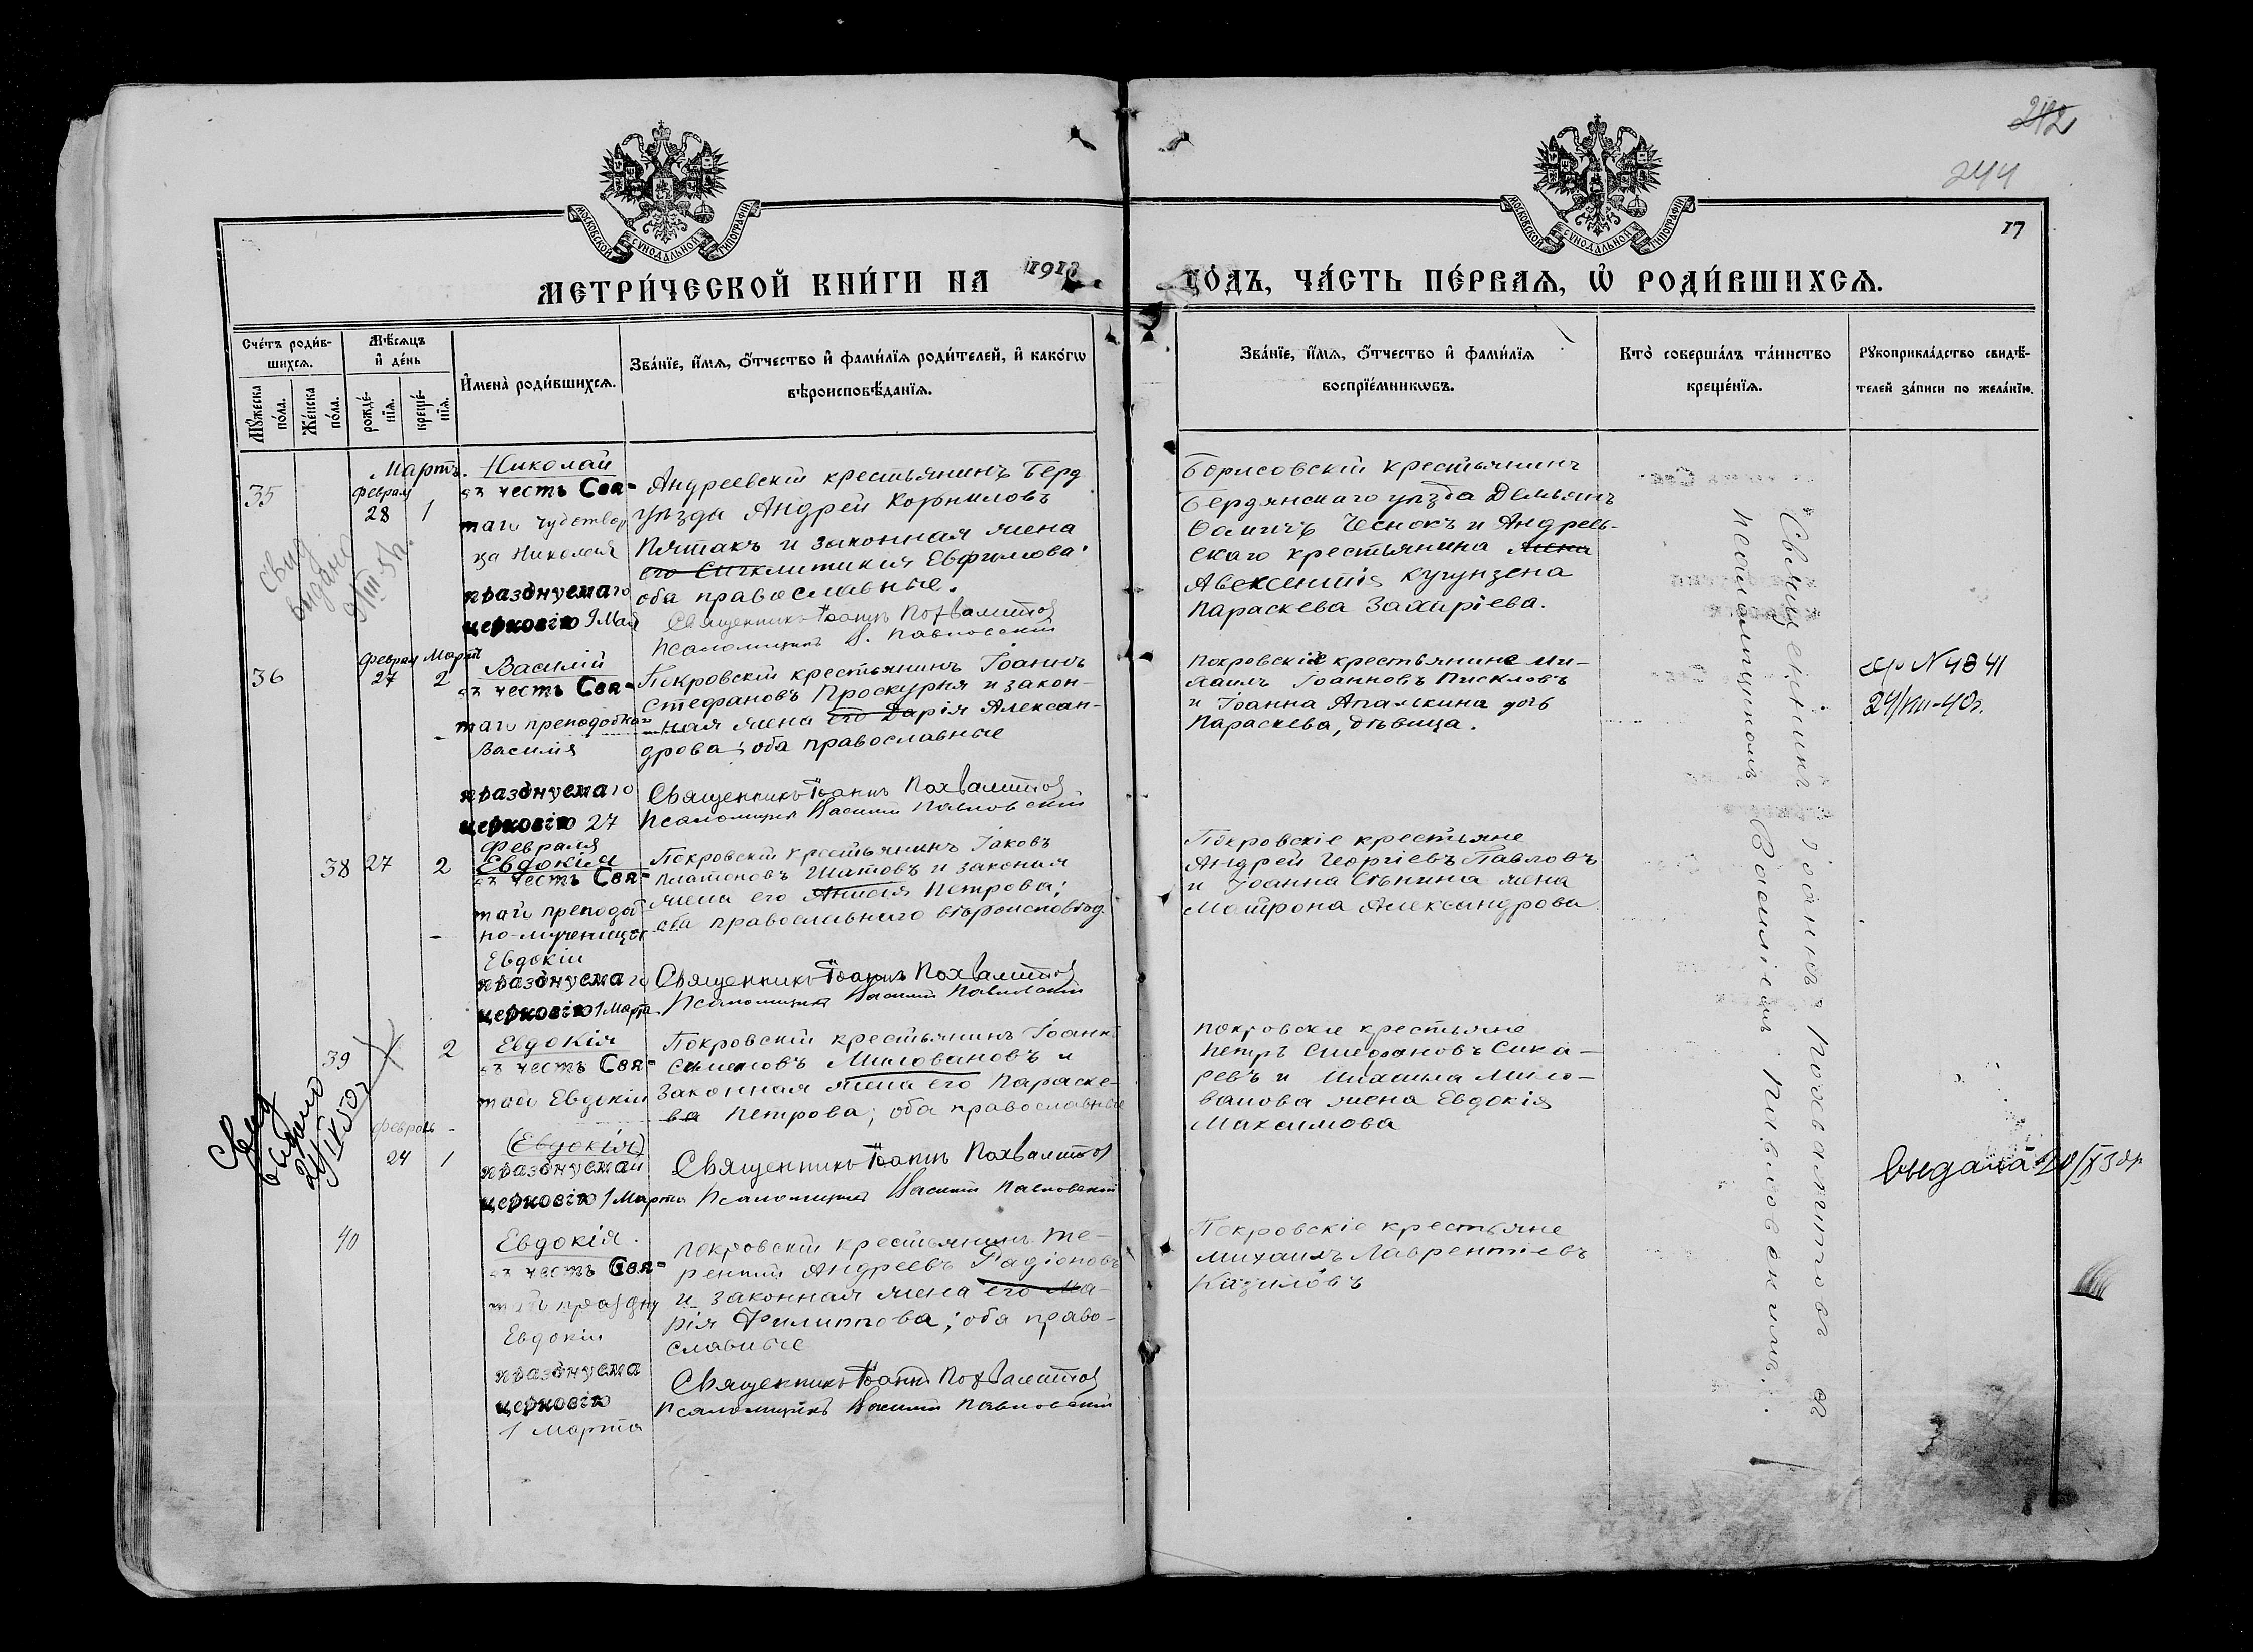 242
244
17
МОСКОВСКОЙ СѴНОДАЛЬНОЙ ТИПОГРАФІИ
МОСКОВСКОЙ СѴНОДАЛЬНОЙ ТИПОГРАФІИ
МЕТРИ́ЧЕСКОЙ КНИ́ГИ НА 191
ГО́ДЪ, ЧА́СТЬ ПЕ́РВАѦ, Ѡ҆ РОДИ́ВШИХСѦ.
Сче́тъ роди́в-
шихсѧ.
Мꙋ́жеска по́ла.
Же́нска по́ла.
Мѣ́сѧцъ
и҆ де́нь
рожде́-
нїѧ.
креще́-
нїѧ.
И҆мена̀ роди́вшихсѧ.
Зва́нїе, и҆́мѧ, ѻ҆́тчество и҆ фами́лїѧ роди́телей, и҆ како́гѡ
вѣроисповѣ́данїѧ.
Зва́нїе, и҆́мѧ, ѻ҆́тчество и҆ фами́лїѧ
воспрїе́мникѡвъ.
Кто̀ соверша́лъ та́инство
креще́нїѧ.
Рꙋкоприкла́дство свидѣ́-
телей за́писи по жела́нїю.
35
Мартъ.
Феврал
28 1
Николай
въ честь Свя-
таго чудотвор
ца Николая
празднуемаго
церковію 9 Мая
Андреевскій крестьянинъ Берд
уѣзда Андрей Корниловъ
Пятакъ и законная жена
его Сигклитикія Евфимова;
оба православные.
Священникъ Іоаннъ Похвалитов
Псаломщикъ В. Павловскій
Борисовскій крестьянинъ
Бердянскаго уѣзда Демьянъ
Чеснокъ и Андреев-
скаго крестьянина жена
Авксентія
Параскева Захаріева.
Свид
видано
36
Феврал Март
27 2
Василій
въ честь Свя-
таго преподобнаго
Василія
празднуемаго
церковію 27
Февраля
Покровскій крестьянинъ Іоаннъ
Стефановъ Проскурня и закон-
ная жена его Дарія Алексан-
дрова; оба православные
Священникъ Іоаннъ Похвалитов
Псаломщикъ Василий Павловскій
Покровскіе крестьянине Ми-
хаилъ Іоанновъ Пискловъ
и Іоанна дочь
Параскева, дѣвица.
N 4841
38 27 2
Евдокія
въ честь Свя-
таго преподоб
но-мученицы
Евдокіи
празднуемаго
церковію 1 Марта
Покровскій крестьянинъ Іаковъ
Платоновъ Шатовъ и законная
жена его Анисія Петрова;
оба православнаго вѣроисповѣд.
Священникъ Іоаннъ Похвалитов
Псаломщикъ Василий Павловскій
Покровскіе крестьяне
Андрей Георгіевъ Павловъ
и Іоанна Сѣнина жена
Матрона Александрова
39 2
Февраль
24 1
Евдокія
въ честь Свя-
таго Евдокіи
(Евдокія)
празднуемаи
церковію 1 Марта
Покровскій крестьянинъ Іоаннъ
Миловановъ и
законная жена его Параске-
ва Петрова; оба православные
Священникъ Іоаннъ Похвалитов
Псаломщикъ Василий Павловскій
Покровские крестьяне
Петръ Стефановъ Сика-
ревъ и Михаила Мило-
ванова жена Евдокія
Максимова
Свид
выдано
выдана
40
Евдокія.
въ честь Свя-
Евдокіи
празднуема
церковію
1 Марта
Покровскій крестьянинъ Те-
рентий Андреевъ Радіоновъ
и законная жена его Ма-
рія Филиппова; оба право-
славные
Священникъ Іоаннъ Похвалитов
Псаломщикъ Василий Павловскій
Покровскіе крестьяне
Михаилъ Лаврентіевъ
Казиловъ
Священникъ Іоаннъ Похвалитовъ съ
псаломщикомъ Василіемъ Павловскимъ.